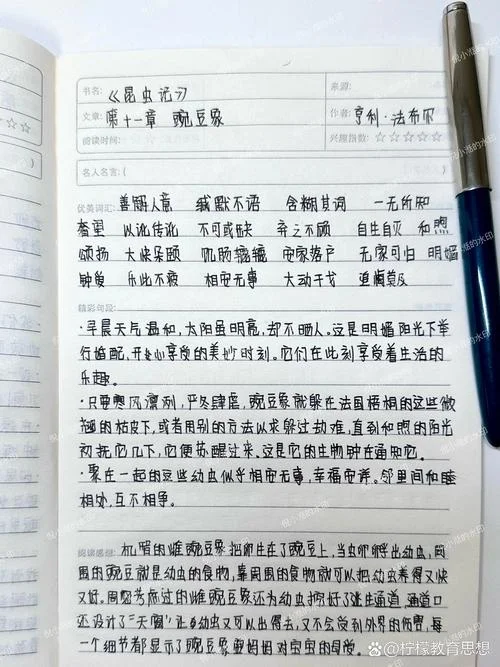 书名: 《昆虫记》
来源:
文章: 第十一章 豌豆象
作者: 亨利·法布尔
阅读时间:
兴趣指数: ☆☆☆☆☆
名人名言(
)
优美词汇: 善解人意 缄默不语 含糊其词 一无所知
奢望 以讹传讹 不可或缺 弃之不顾 自生自灭 和煦
颂扬 大快朵颐 饥肠辘辘 安家落户 无家可归 明媚
钟爱 乐此不疲 相安无事 大动干戈 追悔莫及
精彩句段:
·早晨天气温和,太阳虽明亮,却不晒人。这是明媚阳光下举
行婚配,开心享受的美妙时刻。它们在此刻享受着生活的
乐趣。
·只要寒风凛冽,严冬肆虐,豌豆象就躲在法国梧桐的这些微
翘的枯皮下,或者用别的方法以求躲过劫难,直到和煦的阳光
初抚它几下,它便苏醒过来,这是它的生物钟在通知它。
·聚在一起的豆些幼虫似乎相安无事,幸福安详。邻里间和睦
相处,互不相争。
阅读感想: 机智的雌豌豆象把卵生在了豌豆上,当虫卵孵出幼虫,周
围的豌豆就是幼虫的食物,靠周围的食物就可以把幼虫养得又快
又好。周密考虑过的雌豌豆象还为幼虫挖好了逃生通道,通道口
还设计了“天窗”让幼虫又可以出得去,又不会受到外界的伤害,每
一个细节都显示了豌豆象妈妈对宝宝的母爱。
倪小范的水印
@柠檬教育思想